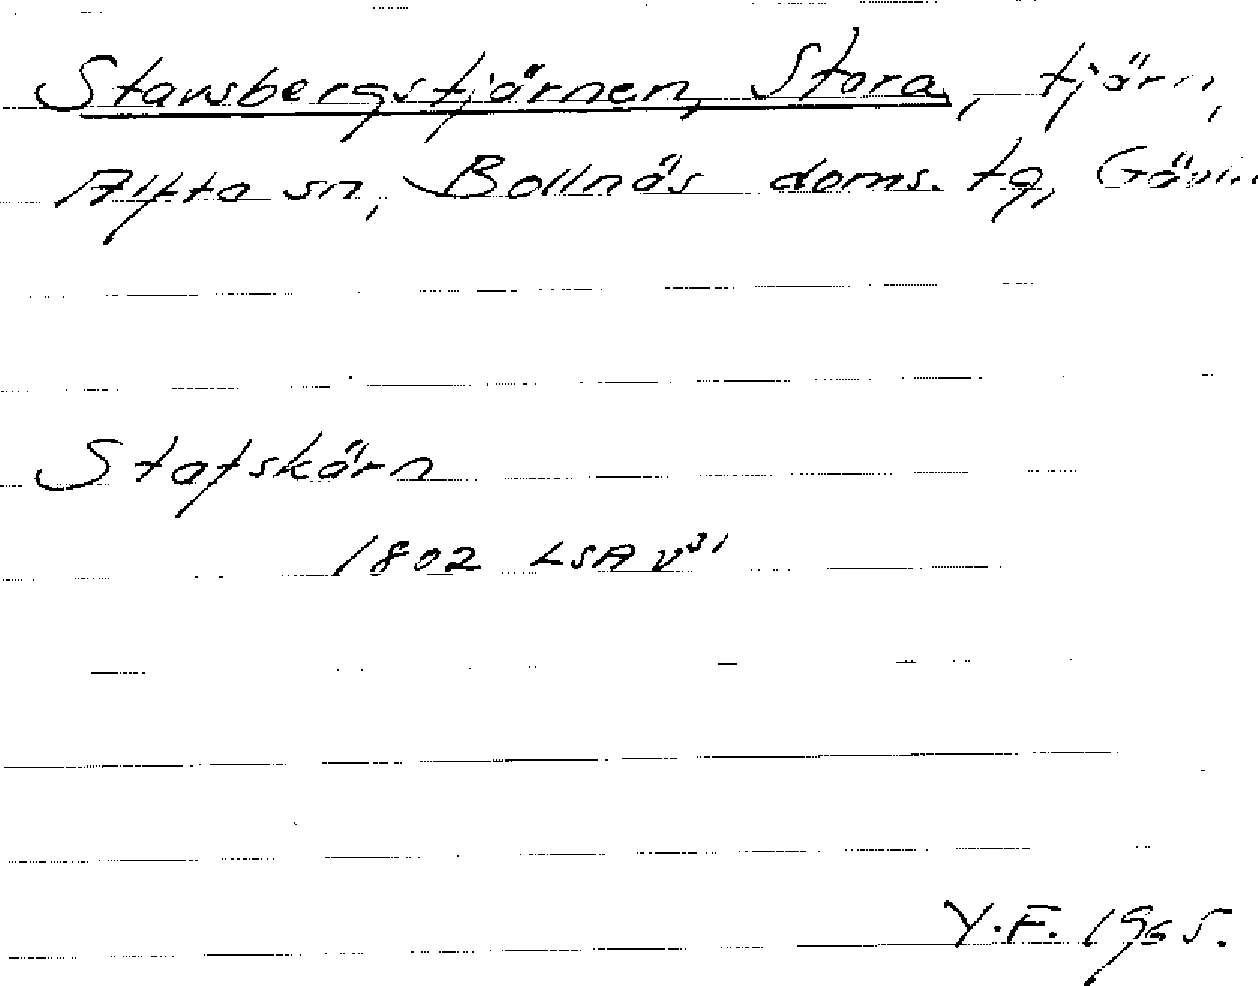 Stavsbergstjärnen, Stora, tjärn,
Alfta sn, Bollnäs doms. tg,
Stafskärn
1802 LSA V31
Y.F. 1965.